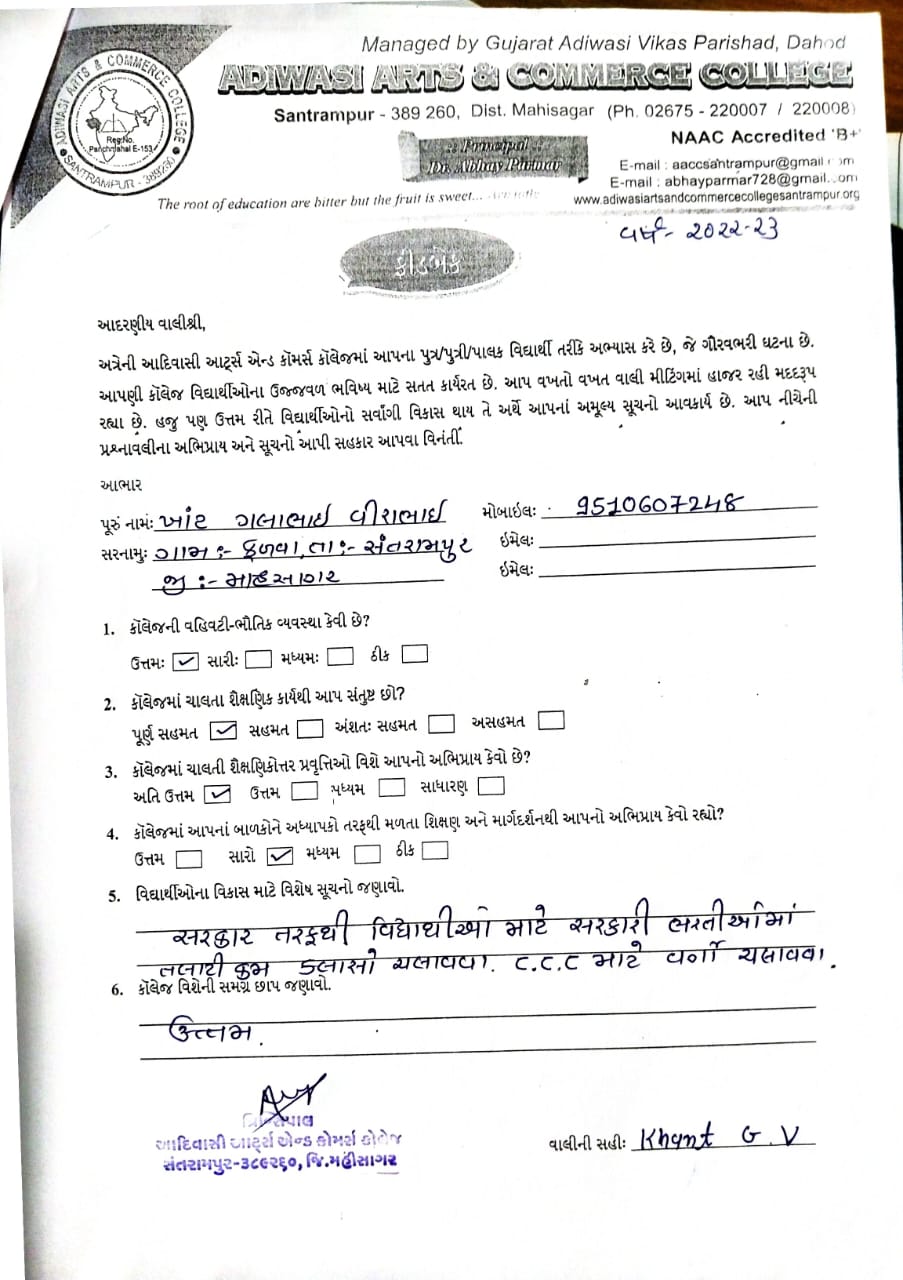 Managed by Gujarat Adiwasi Vikas Parishad, Dahod
ADIWASI ARTS & COMMERCE COLLEGE
Santrampur - 389 260, Dist. Mahisagar (Ph. 02675 - 220007 / 220008)
ADIWASI ARTS & COMMERCE COLLEGE
Reg.No.
Panchmahal E-153
SANTRAMPUR - 389260
NAAC Accredited 'B+'
:: Principal ::
Dr. Abhay Parmar
E-mail : aaccsantrampur@gmail.com
E-mail : abhayparmar728@gmail.com
www.adiwasiartsandcommercecollegesantrampur.org
The root of education are bitter but the fruit is sweet...
વર્ષ - ૨૦૨૨-૨૩
ફીડબેક
આદરણીય વાલીશ્રી,
અત્રેની આદિવાસી આર્ટ્સ એન્ડ કૉમર્સ કૉલેજમાં આપના પુત્ર/પુત્રી/પાલક વિદ્યાર્થી તરીકે અભ્યાસ કરે છે, જે ગૌરવભરી ઘટના છે.
આપણી કૉલેજ વિદ્યાર્થીઓના ઉજ્જવળ ભવિષ્ય માટે સતત કાર્યરત છે. આપ વખતો વખત વાલી મીટિંગમાં હાજર રહી મદદરૂપ
રહ્યા છે. હજુ પણ ઉત્તમ રીતે વિદ્યાર્થીઓનો સર્વાંગી વિકાસ થાય તે અર્થે આપનાં અમૂલ્ય સૂચનો આવકાર્ય છે. આપ નીચેની
પ્રશ્નાવલીના અભિપ્રાય અને સૂચનો આપી સહકાર આપવા વિનંતી.
આભાર
પૂરું નામં: ખાંટ ગલાભાઇ વીરાભાઇ મોબાઇલ: 9510607248
સરનામુ: ગામ :- કળવા, તા :- સંતરામપુર ઇમેલ:
જી :- માહિસાગર ઇમેલ:
1. કૉલેજની વહિવટી-ભૌતિક વ્યવસ્થા કેવી છે?
ઉત્તમ: ✓ સારી: મધ્યમ: ઠીક
2. કૉલેજમાં ચાલતા શૈક્ષણિક કાર્યથી આપ સંતુષ્ટ છો?
પૂર્ણ સહમત ✓ સહમત અંશત: સહમત અસહમત
3. કૉલેજમાં ચાલતી શૈક્ષણિકોત્તર પ્રવૃત્તિઓ વિશે આપનો અભિપ્રાય કેવો છે?
અતિ ઉત્તમ ✓ ઉત્તમ મધ્યમ સાધારણ
4. કૉલેજમાં આપનાં બાળકોને અધ્યાપકો તરફથી મળતા શિક્ષણ અને માર્ગદર્શનથી આપનો અભિપ્રાય કેવો રહ્યો?
ઉત્તમ સારો ✓ મધ્યમ ઠીક
5. વિદ્યાર્થીઓના વિકાસ માટે વિશેષ સૂચનો જણાવો.
સરકાર તરફથી વિદ્યાથીઓ માટે સરકારી ભરતીઓમાં
તલાટી કમ કલાસો ચલાવવા. C.C.C માટે વર્ગો ચલાવવા.
6. કૉલેજ વિશેની સમગ્ર છાપ જણાવો.
ઉત્તમ.
પ્રિન્સિપાલ
આદિવાસી આર્ટ્સ એન્ડ કોમર્સ કોલેજ
સંતરામપુર-૩૮૯૨૬૦, જિ.મહીસાગર
વાલીની સહી: Khant G. V